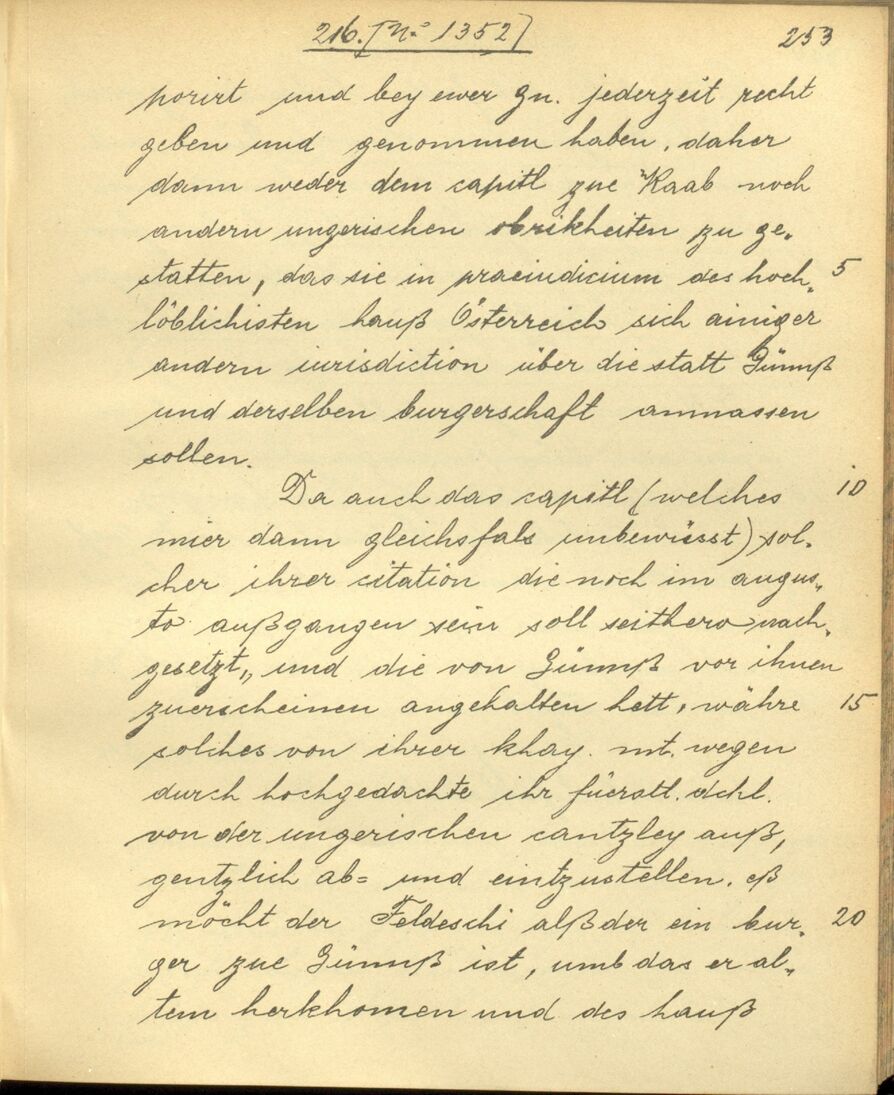 216. [No 1352]
253
porirt und bey ewer gn. jederzeit recht
geben und genommen haben, daher
dann weder dem capitl zue Raab noch
andern ungerischen obrikheiten zu ge„
statten, das sie in praeiudicium des hoch„ 5
löblichisten hauß Österreich sich ainiger
andern iurisdiction über die statt Günnß
und derselben burgerschaft anmassen
sollen.
Da auch das capitl (welches 10
mier dann gleichsfals unbewüsst) sol„
cher ihrer citation die noch im augus„
to außgangen sein soll seithero nach„
gesetzt„ und die von Günnß vor ihnen
zuerscheinen angehalten hett, währe 15
solches von ihrer khay. mt. wegen
durch hochgedachte ihr fürstl. dchl.
von der ungerischen cantzley auß,
gentzlich ab= und eintzustellen. eß
möcht der Feldeschi alß der ein bur„ 20
ger zue Günnß ist, umb das er al„
tem herkhomen und des hauß